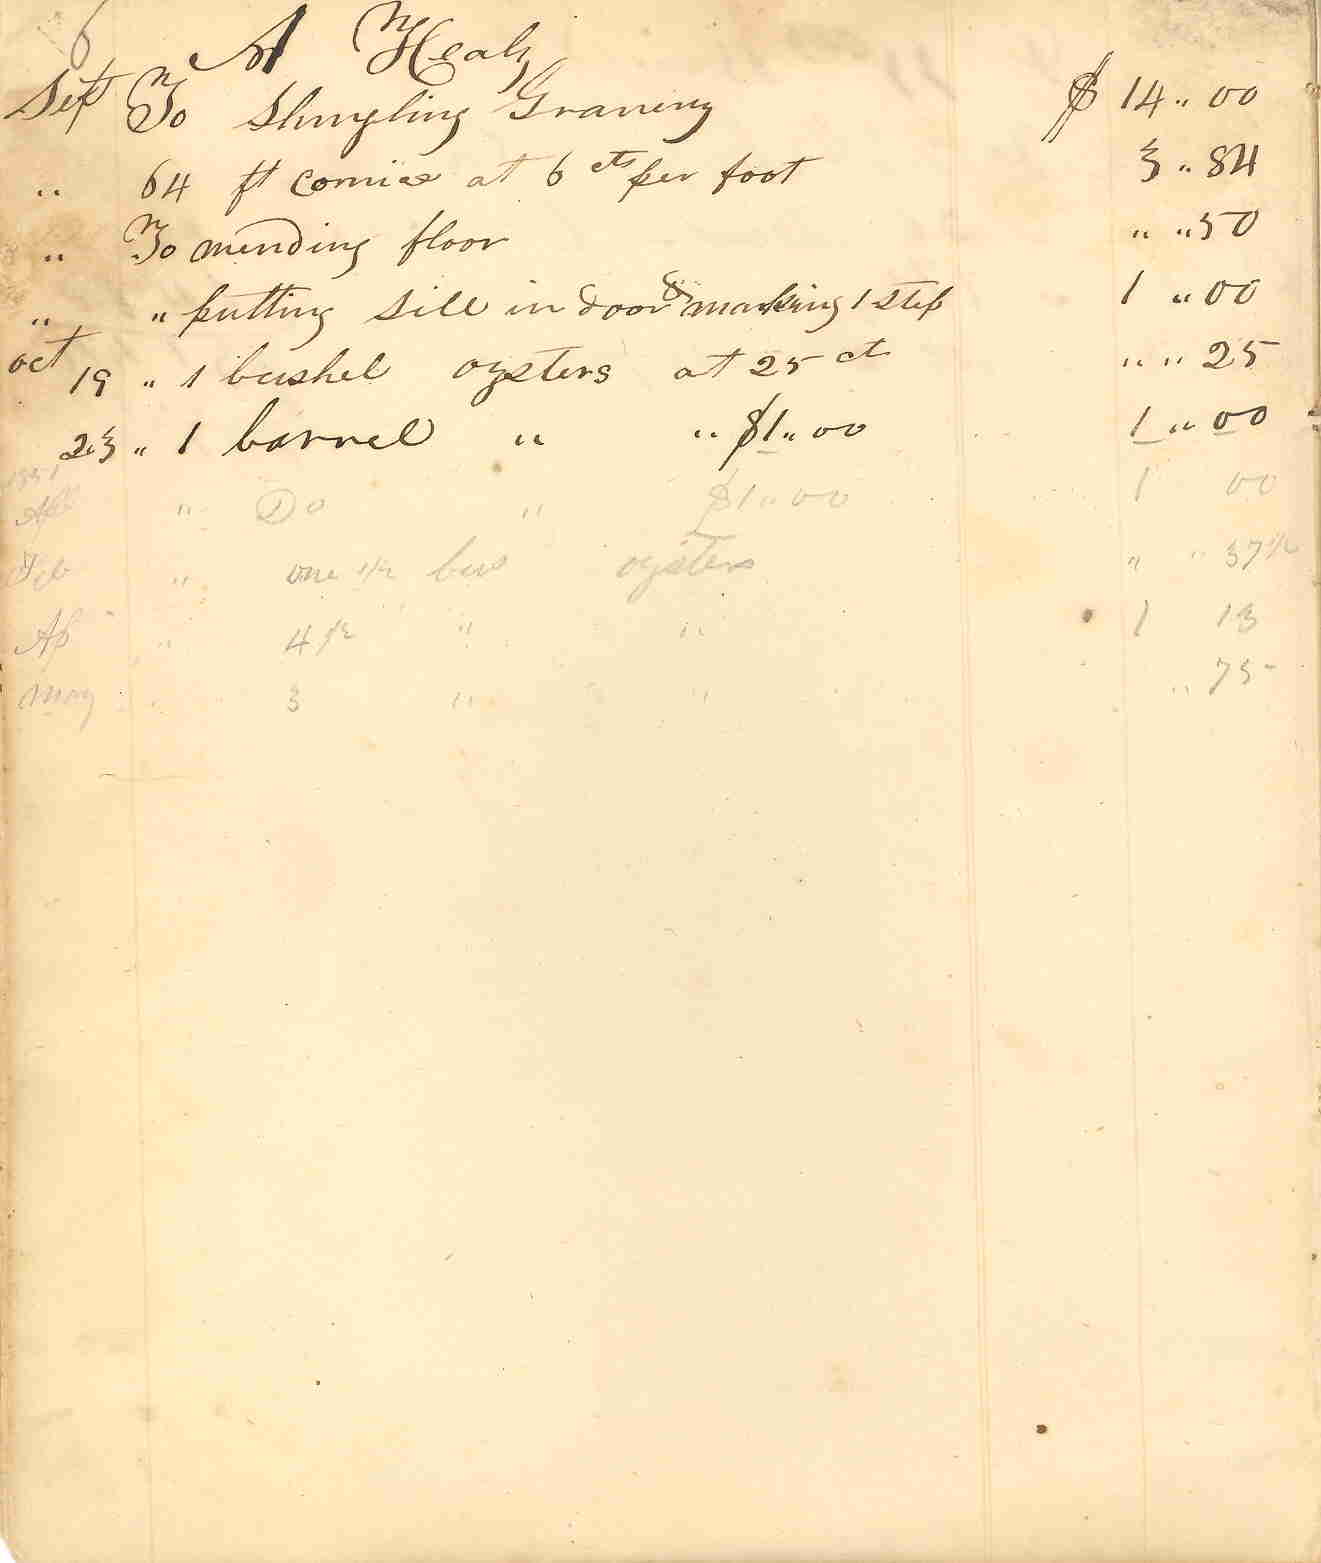 6
A Healy
Sept To Shingling Granery $ 14 " 00
" 64 ft cornice at 6 cts per foot 3 " 84
" To mending floor " " 50
" " putting sill in door & making 1 step 1 " 00
oct 19 " 1 bushel oysters at 25 ct " " 25
23 " 1 barrel " " $1 " 00 1 " 00
1851
" Do " $1 " 00 1 00
Feb " one 1/2 bus oysters " " 37 1/2
Ap " 4 1/2 " " 1 13
May " 3 " " " 75